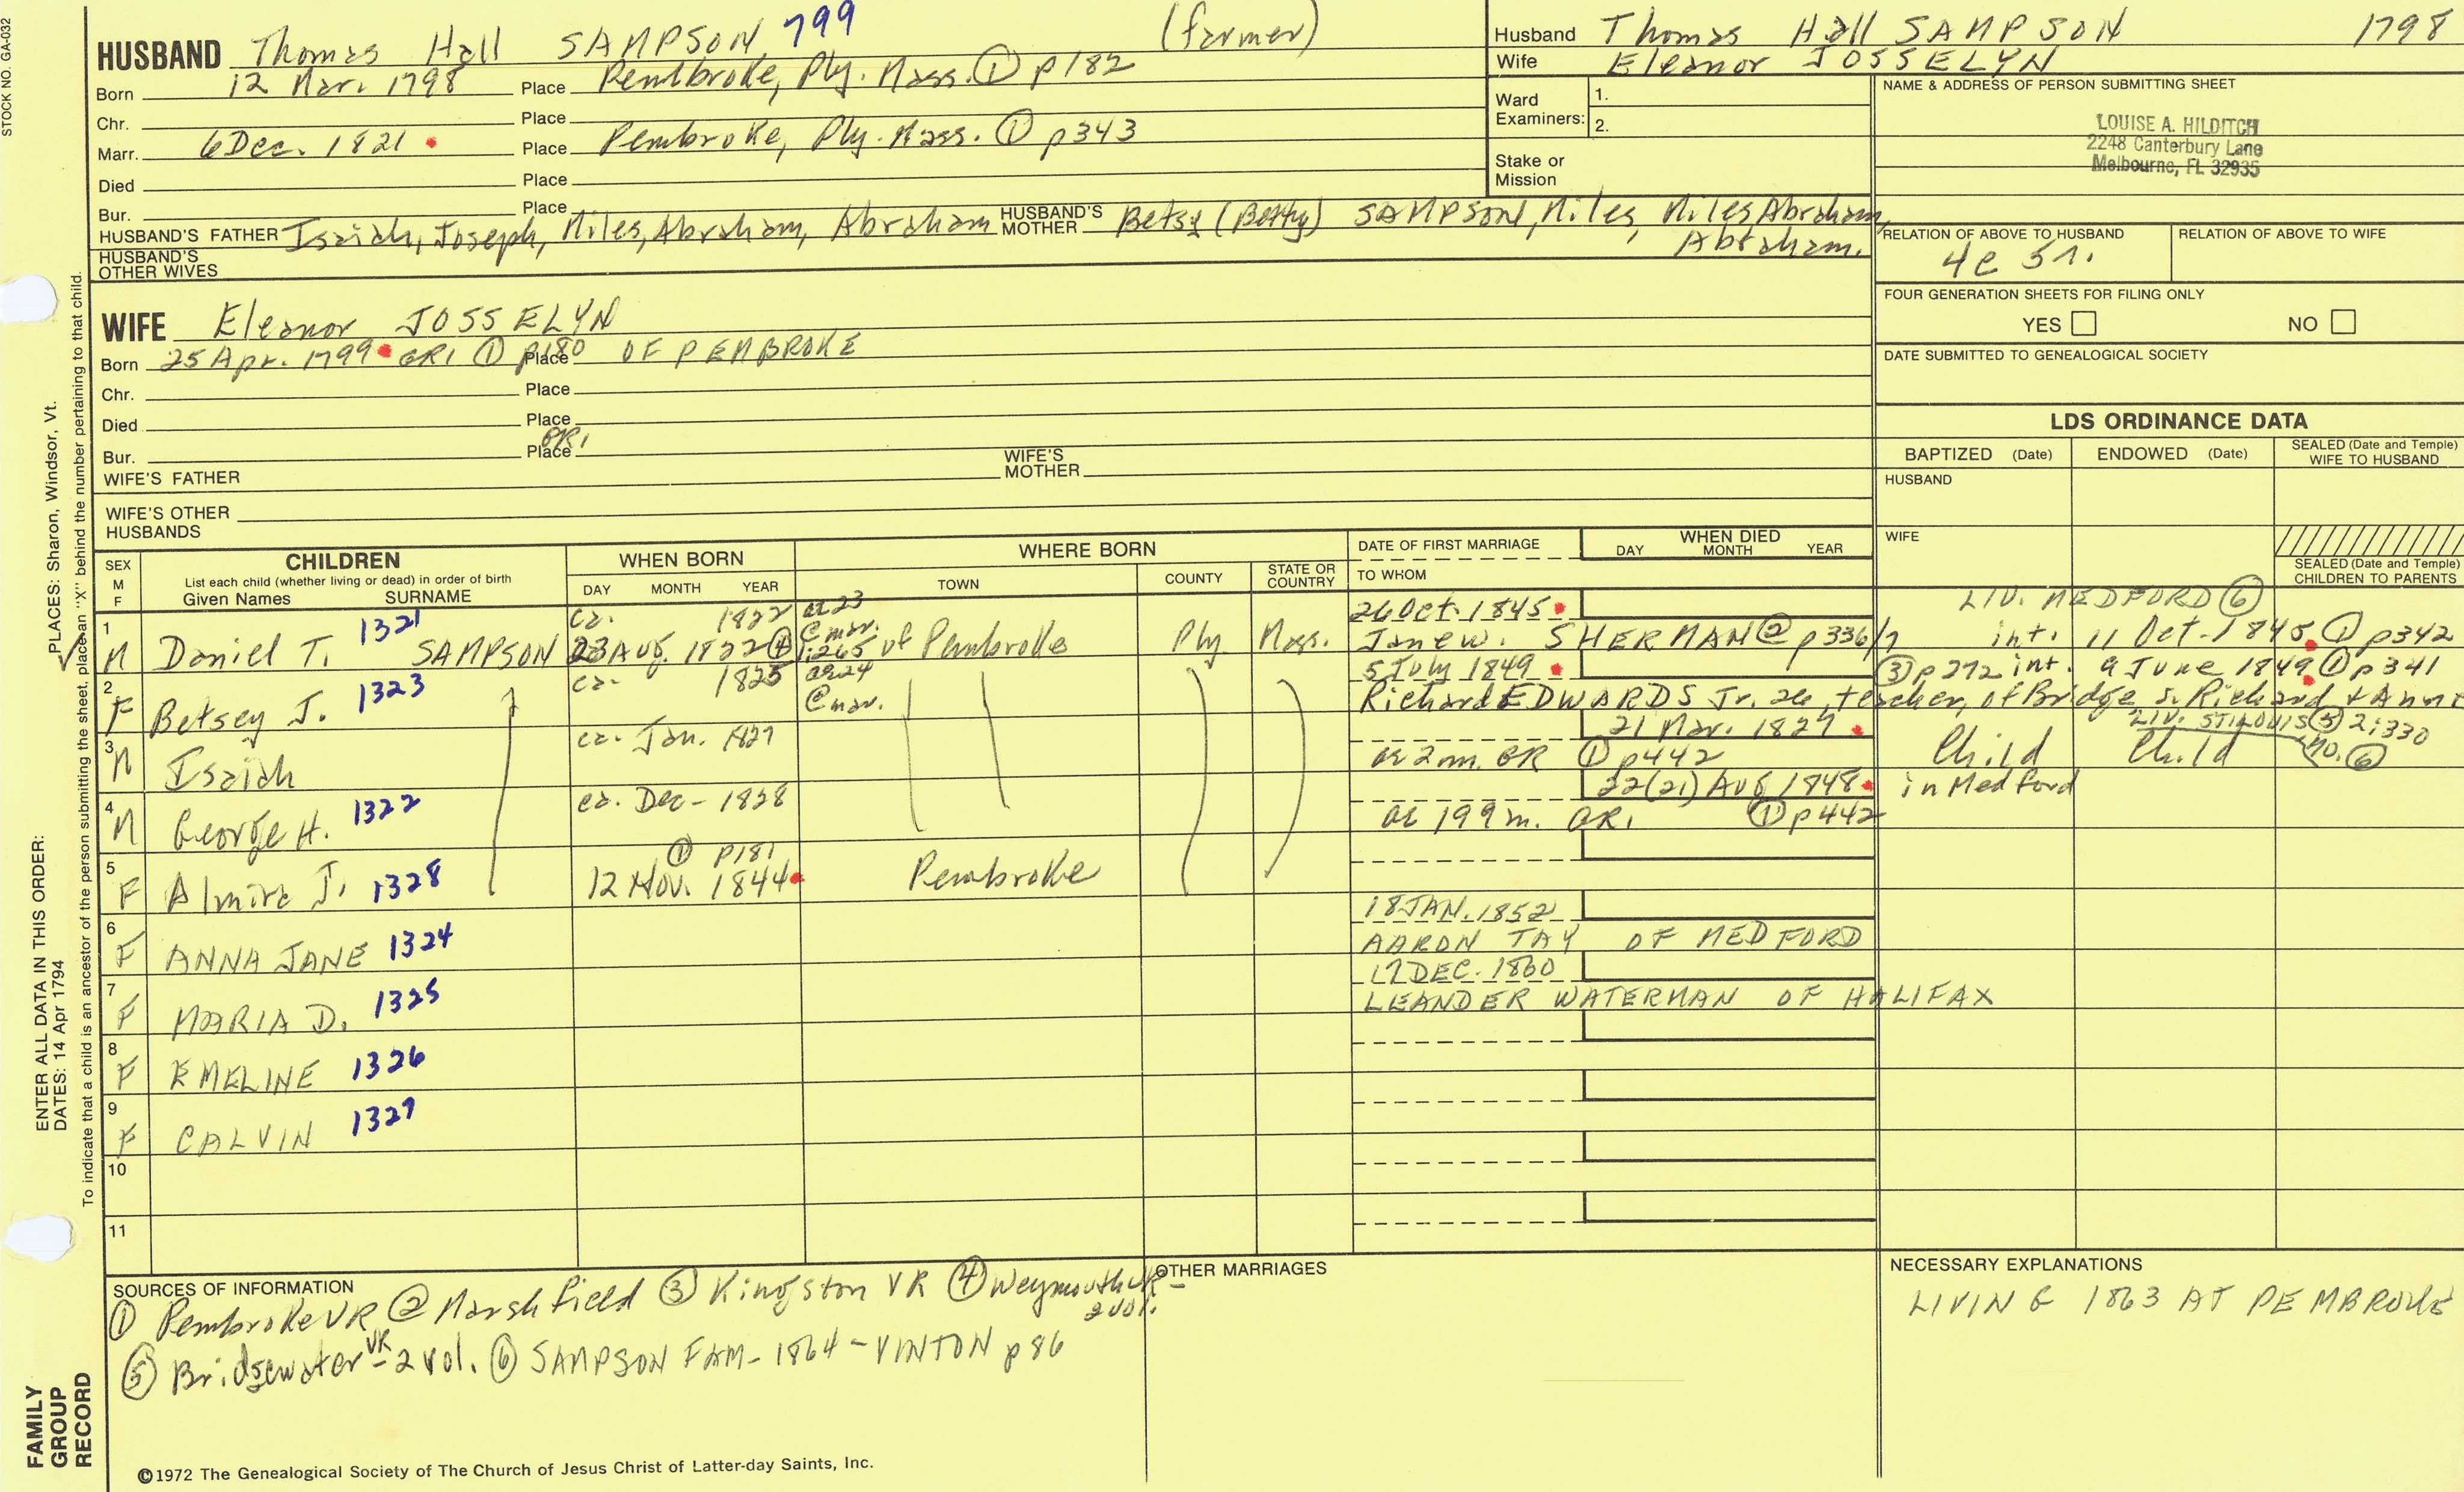 STOCK NO. GA-032
HUSBAND Thomas Hall SAMPSON 799 (farmer)
Born 12 Mar. 1798 Place Pembroke, Ply. Mass. ① p182
Chr. Place
Marr. 6 Dec. 1821 Place Pembroke, Ply. Mass. ① p343
Died Place
Bur. Place
HUSBAND'S FATHER Isaiah, Joseph, Miles, Abraham, Abraham HUSBAND'S MOTHER Betsy (Betty) SAMPSON, Miles, Miles, Abraham, Abraham.
HUSBAND'S OTHER WIVES
Husband Thomas Hall SAMPSON 1798
Wife Eleanor JOSSELYN
Ward Examiners: 1. 2.
Stake or Mission
NAME & ADDRESS OF PERSON SUBMITTING SHEET
LOUISE A. HILDITCH
2248 Canterbury Lane
Melbourne, FL 32935
RELATION OF ABOVE TO HUSBAND RELATION OF ABOVE TO WIFE
4c 5r.
FOUR GENERATION SHEETS FOR FILING ONLY
YES NO
DATE SUBMITTED TO GENEALOGICAL SOCIETY
WIFE Eleanor JOSSELYN
Born 25 Apr. 1799 GR1 ① p180 Place OF PEMBROKE
Chr. Place
Died Place
Bur. Place GR1
WIFE'S FATHER WIFE'S MOTHER
WIFE'S OTHER HUSBANDS
LDS ORDINANCE DATA
BAPTIZED (Date) ENDOWED (Date) SEALED (Date and Temple) WIFE TO HUSBAND
HUSBAND
WIFE
SEALED (Date and Temple) CHILDREN TO PARENTS
SEX M F CHILDREN List each child (whether living or dead) in order of birth Given Names SURNAME
WHEN BORN DAY MONTH YEAR
WHERE BORN TOWN COUNTY STATE OR COUNTRY
DATE OF FIRST MARRIAGE TO WHOM
WHEN DIED DAY MONTH YEAR
1 ca. 1822 ae 23 @ mar. 26 Oct. 1845 LIV. MEDFORD ⑥
M Daniel T. 1321 SAMPSON 23 Aug. 1822 ④ 1:265 of Pembroke Ply Mass. Jane W. SHERMAN ② p336/7 int. 11 Oct. 1845 ① p342
2 ca. 1825 ae 24 @ mar. 5 July 1849 ③ p272 int. 9 June 1849 ① p341
F Betsey J. 1323 Richard EDWARDS Jr. 26, teacher, of Bridge s. Richard & Anne
LIV. ST. LOUIS ⑤ 2:330 MO. ⑥
3 M Isaiah ca. Jan. 1827 21 Mar. 1827 Child Child
ae 2 m. GR ① p442
4 M George H. 1322 ca. Dec - 1828 22(21) Aug 1848 in Medford
ae 19 9 m. GR1 ① p442
5 F Almira J. 1328 ① p181 12 Nov. 1844 Pembroke
6 F ANNA JANE 1324 18 JAN. 1852
AARON TAY OF MEDFORD
7 F MARIA D. 1325 17 DEC. 1860
LEANDER WATERMAN OF HALIFAX
8 F EMELINE 1326
9 F CALVIN 1327
10
11
SOURCES OF INFORMATION
① Pembroke VR ② Marshfield ③ Kingston VR ④ Weymouth VR - 2 vol.
⑤ Bridgewater VR - 2 vol. ⑥ SAMPSON FAM - 1864 - VINTON p 86
OTHER MARRIAGES
NECESSARY EXPLANATIONS
LIVING 1863 AT PEMBROKE
©1972 The Genealogical Society of The Church of Jesus Christ of Latter-day Saints, Inc.
ENTER ALL DATA IN THIS ORDER:
DATES: 14 Apr 1794
PLACES: Sharon, Windsor, Vt.
To indicate that a child is an ancestor of the person submitting the sheet, place an "X" behind the number pertaining to that child.
FAMILY
GROUP
RECORD